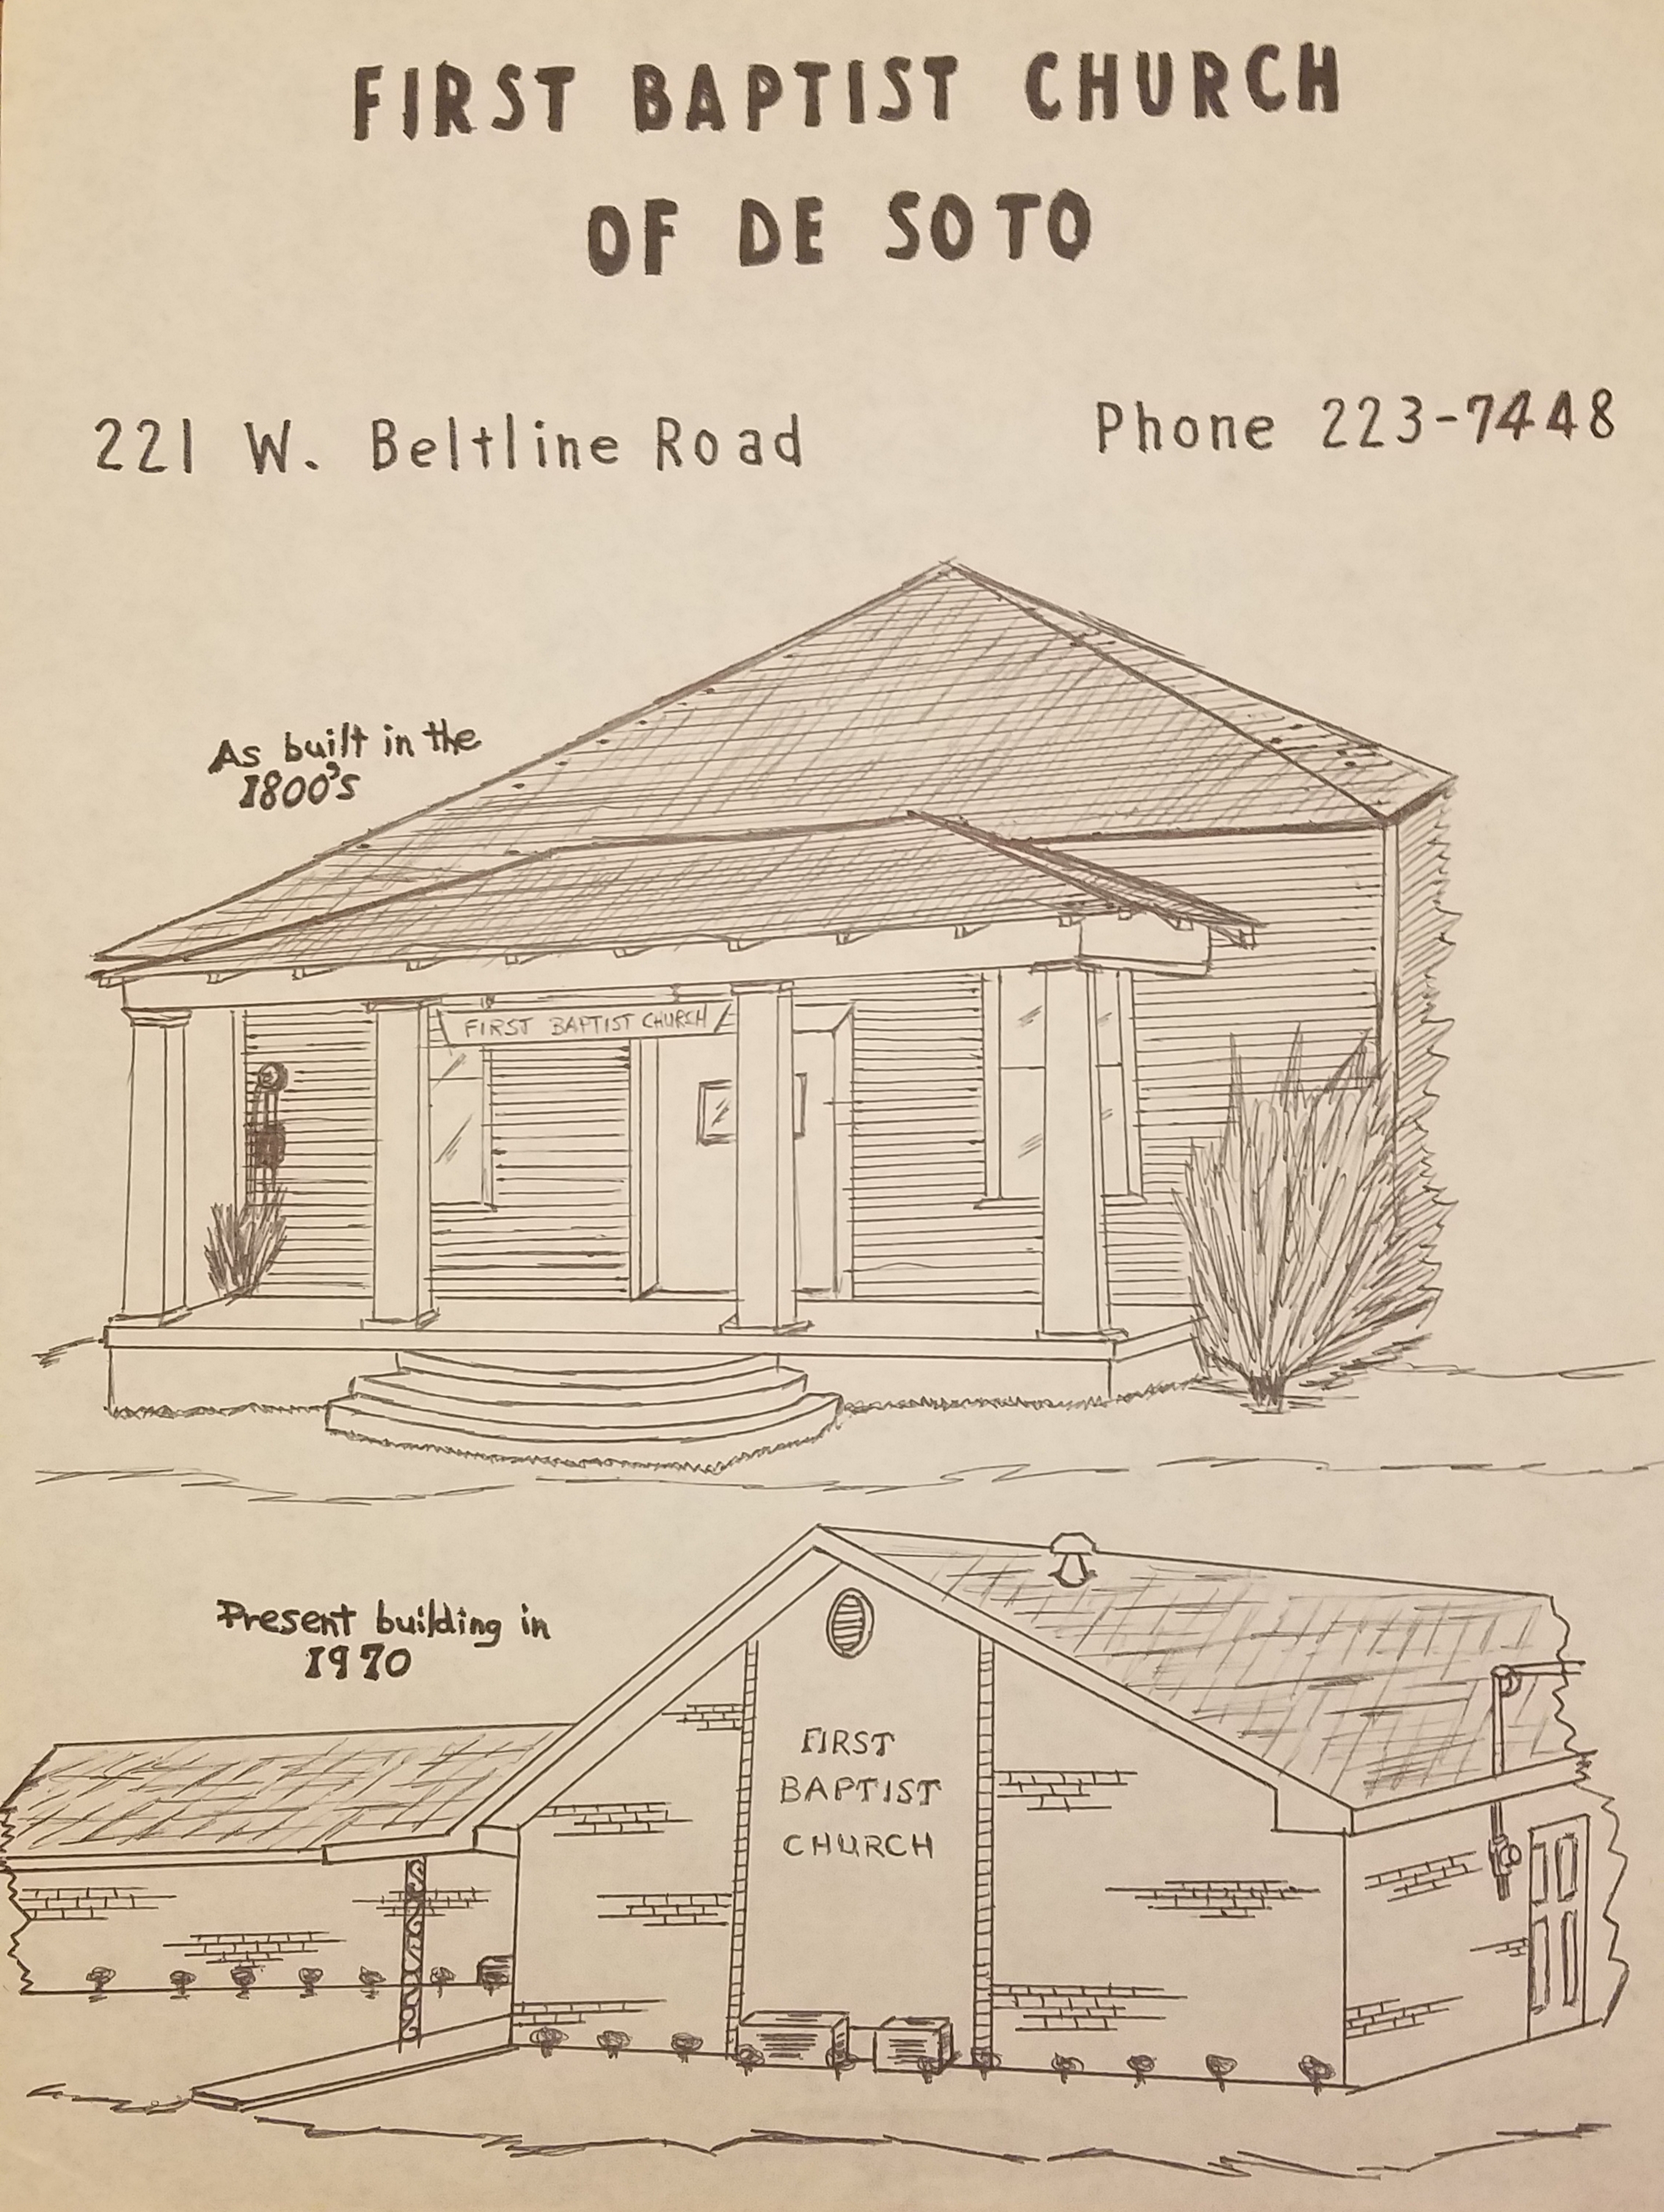 FIRST BAPTIST CHURCH
OF DE SOTO
221 W. Beltline Road
Phone 223-7448
As built in the
1800's
FIRST BAPTIST CHURCH
Present building in
1970
FIRST
BAPTIST
CHURCH